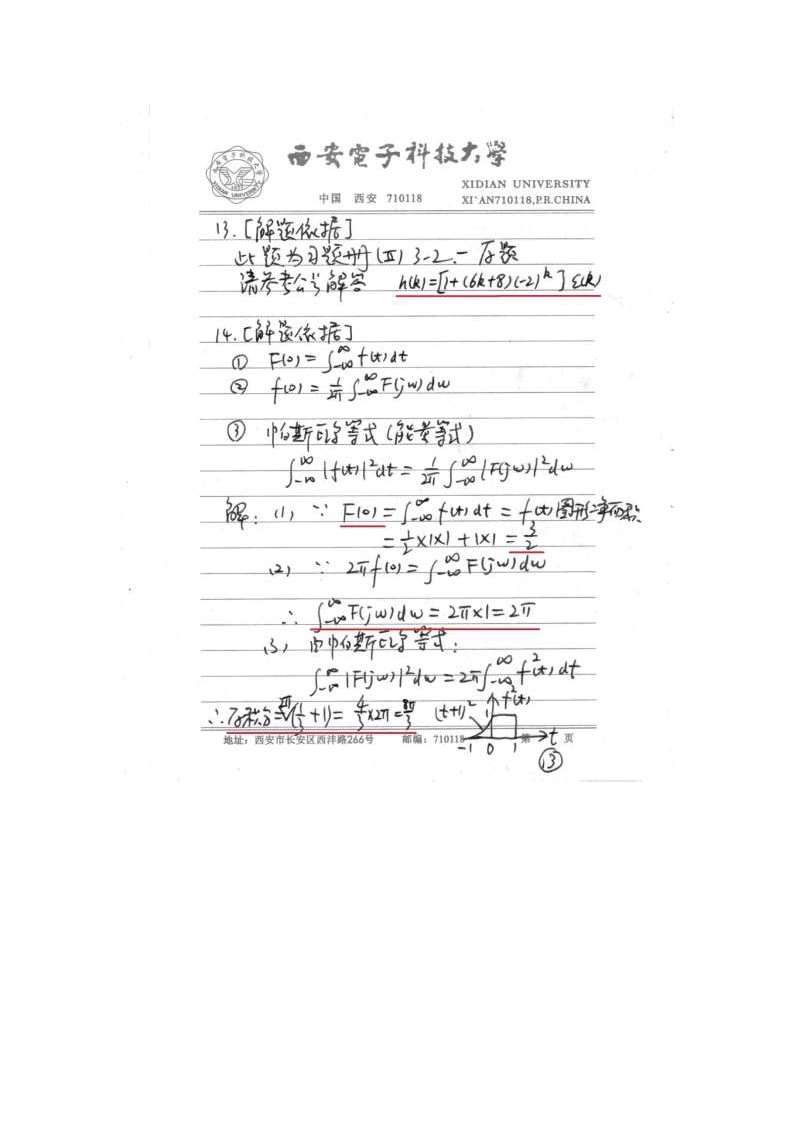 西安电子科技大学
XIDIAN UNIVERSITY
中国 西安 710118 XI`AN710118,P.R.CHINA
13.[解题依据]
此题为习题册(Ⅱ)3-2.一 原题
请参考公式解答 h(k)=[1+(6k+8)(-2)^k]ε(k)
14.[解题依据]
① F(0)=∫_{-∞}^{∞}f(t)dt
② f(0)=\frac{1}{2π}∫_{-∞}^{∞}F(jω)dω
③ 帕斯瓦尔等式(能量等式)
∫_{-∞}^{∞}|f(t)|²dt=\frac{1}{2π}∫_{-∞}^{∞}|F(jω)|²dω
解:(1) ∵ F(0)=∫_{-∞}^{∞}f(t)dt=f(t)图形净面积
=\frac{1}{2}×1×1+1×1=\frac{3}{2}
(2) ∵ 2πf(0)=∫_{-∞}^{∞}F(jω)dω
∴ ∫_{-∞}^{∞}F(jω)dω=2π×1=2π
(3) 由帕斯瓦尔等式:
∫_{-∞}^{∞}|F(jω)|²dω=2π∫_{-∞}^{∞}f²(t)dt
∴原积分=2π(\frac{1}{3}+1)=\frac{4}{3}×2π=\frac{8π}{3} (t+1)² 1 f²(t)
-1 0 1 t
地址:西安市长安区西沣路266号 邮编:710118 第 页
⑬